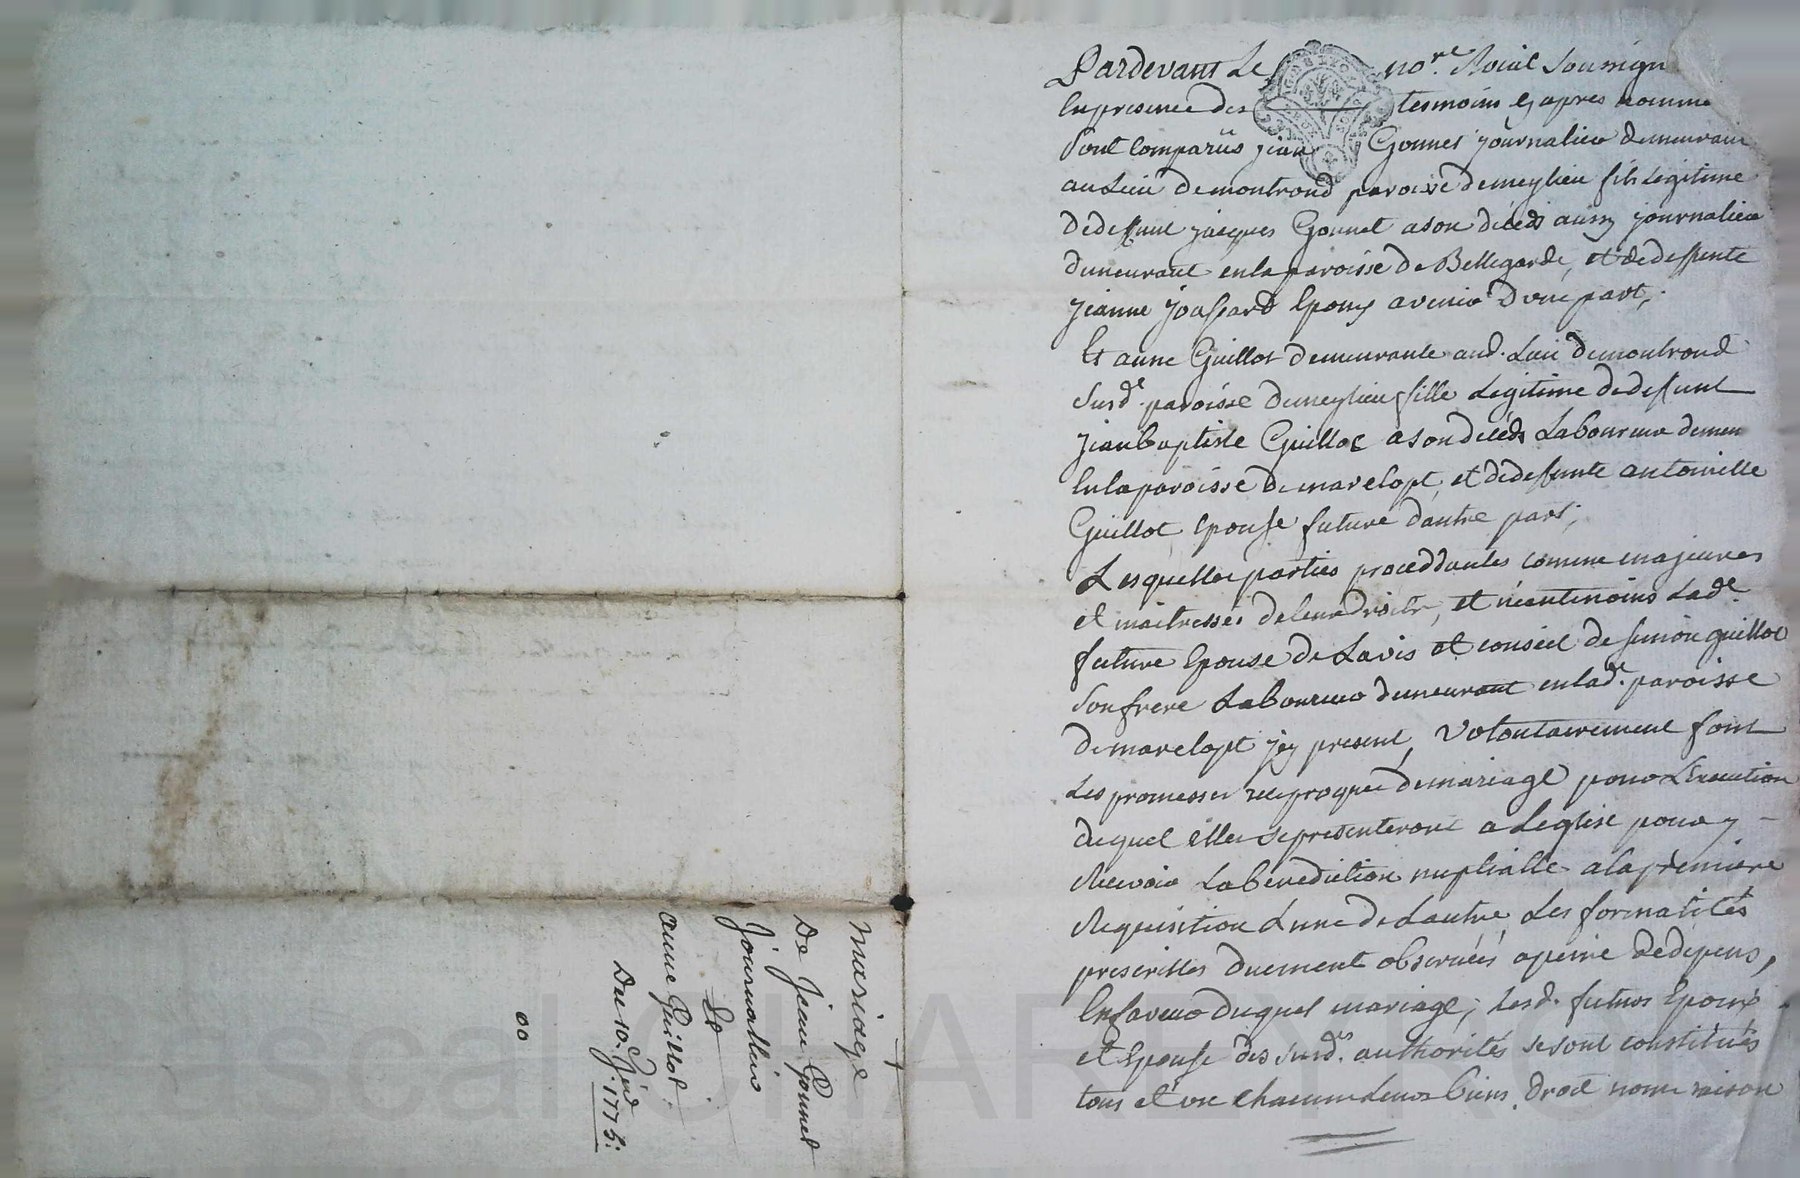 Pardevant Le no.re Roial Soussign
En presence des tesmoins cy apres nomme
Sont comparüs jean Gonnet journalier demeurant
au Lieu de montrond paroisse de meylieu fils Legitime
de deffunt jacques Gonnet a son décéds aussy journalier
demeurant en la paroisse de Bellegarde, et de deffunte
jeanne joussard Epoux avenir d'une part,
Et anne Guillot demeurante aud. Lieu de montrond
susd.e paroisse de meylieu fille Legitime de deffunt
jean baptiste Guillot a son décéds Laboureur demeu
En la paroisse de marclopt, et de deffunte antoinette
Guillot Epouse future d'autre part;
Lesquelles parties proceddantes comme majeures
et maitresses de leur droits, et néantmoins Lad.e
future Epouse de L'avis et conseil de simon guillot
son frere Laboureur demeurant en lad.e paroisse
de marclopt jcy present, volontairement font
Les promesses reciproques de mariage pour L'Execution
duquel elles se presenteront a Leglise pour y
Recevoir La benediction nuptialle a la premiere
Requisition L'une de L'autre, Les formalités
prescrittes duement observées a peine de dépens,
En faveur duquel mariage, Lesd. futurs Epoux
et Epouse des susd.es authorités se sont constitués
tous et un chacuns Leurs biens, droit nom raison
mariage
De Jean Gonnet
Journallier
&
anne Guillot
Du 10. 1775.
00
LCHAR